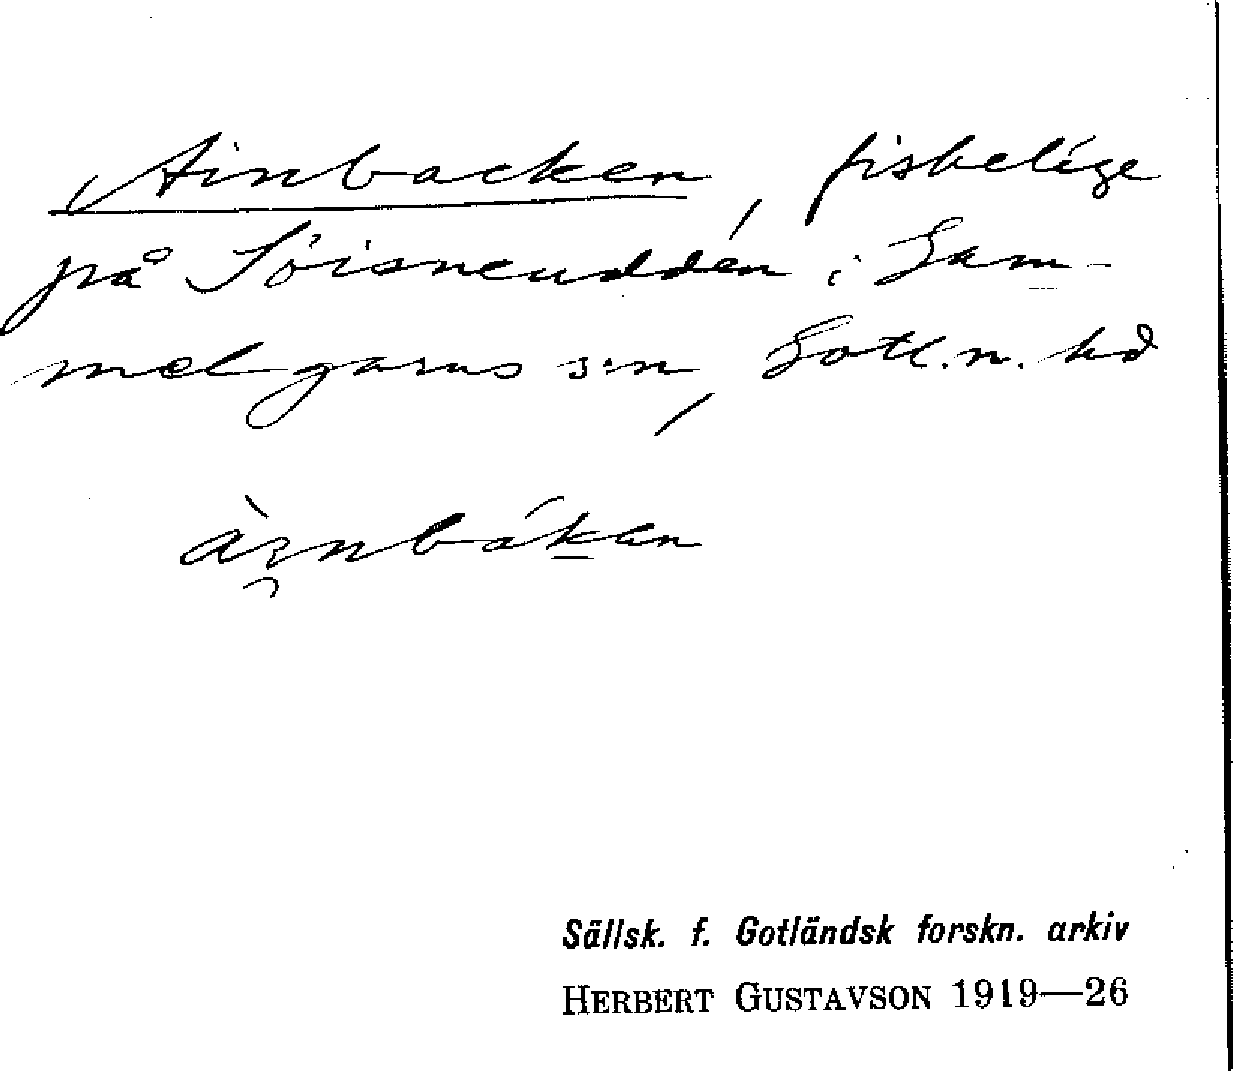 Ainbacken, fiskeläge
på Söisneudden i Gam-
melgarns s:n, Gotl. n. hd
àınbákan
Sällsk. f. Gotländsk forskn. arkiv
HERBERT GUSTAVSON 1919—26